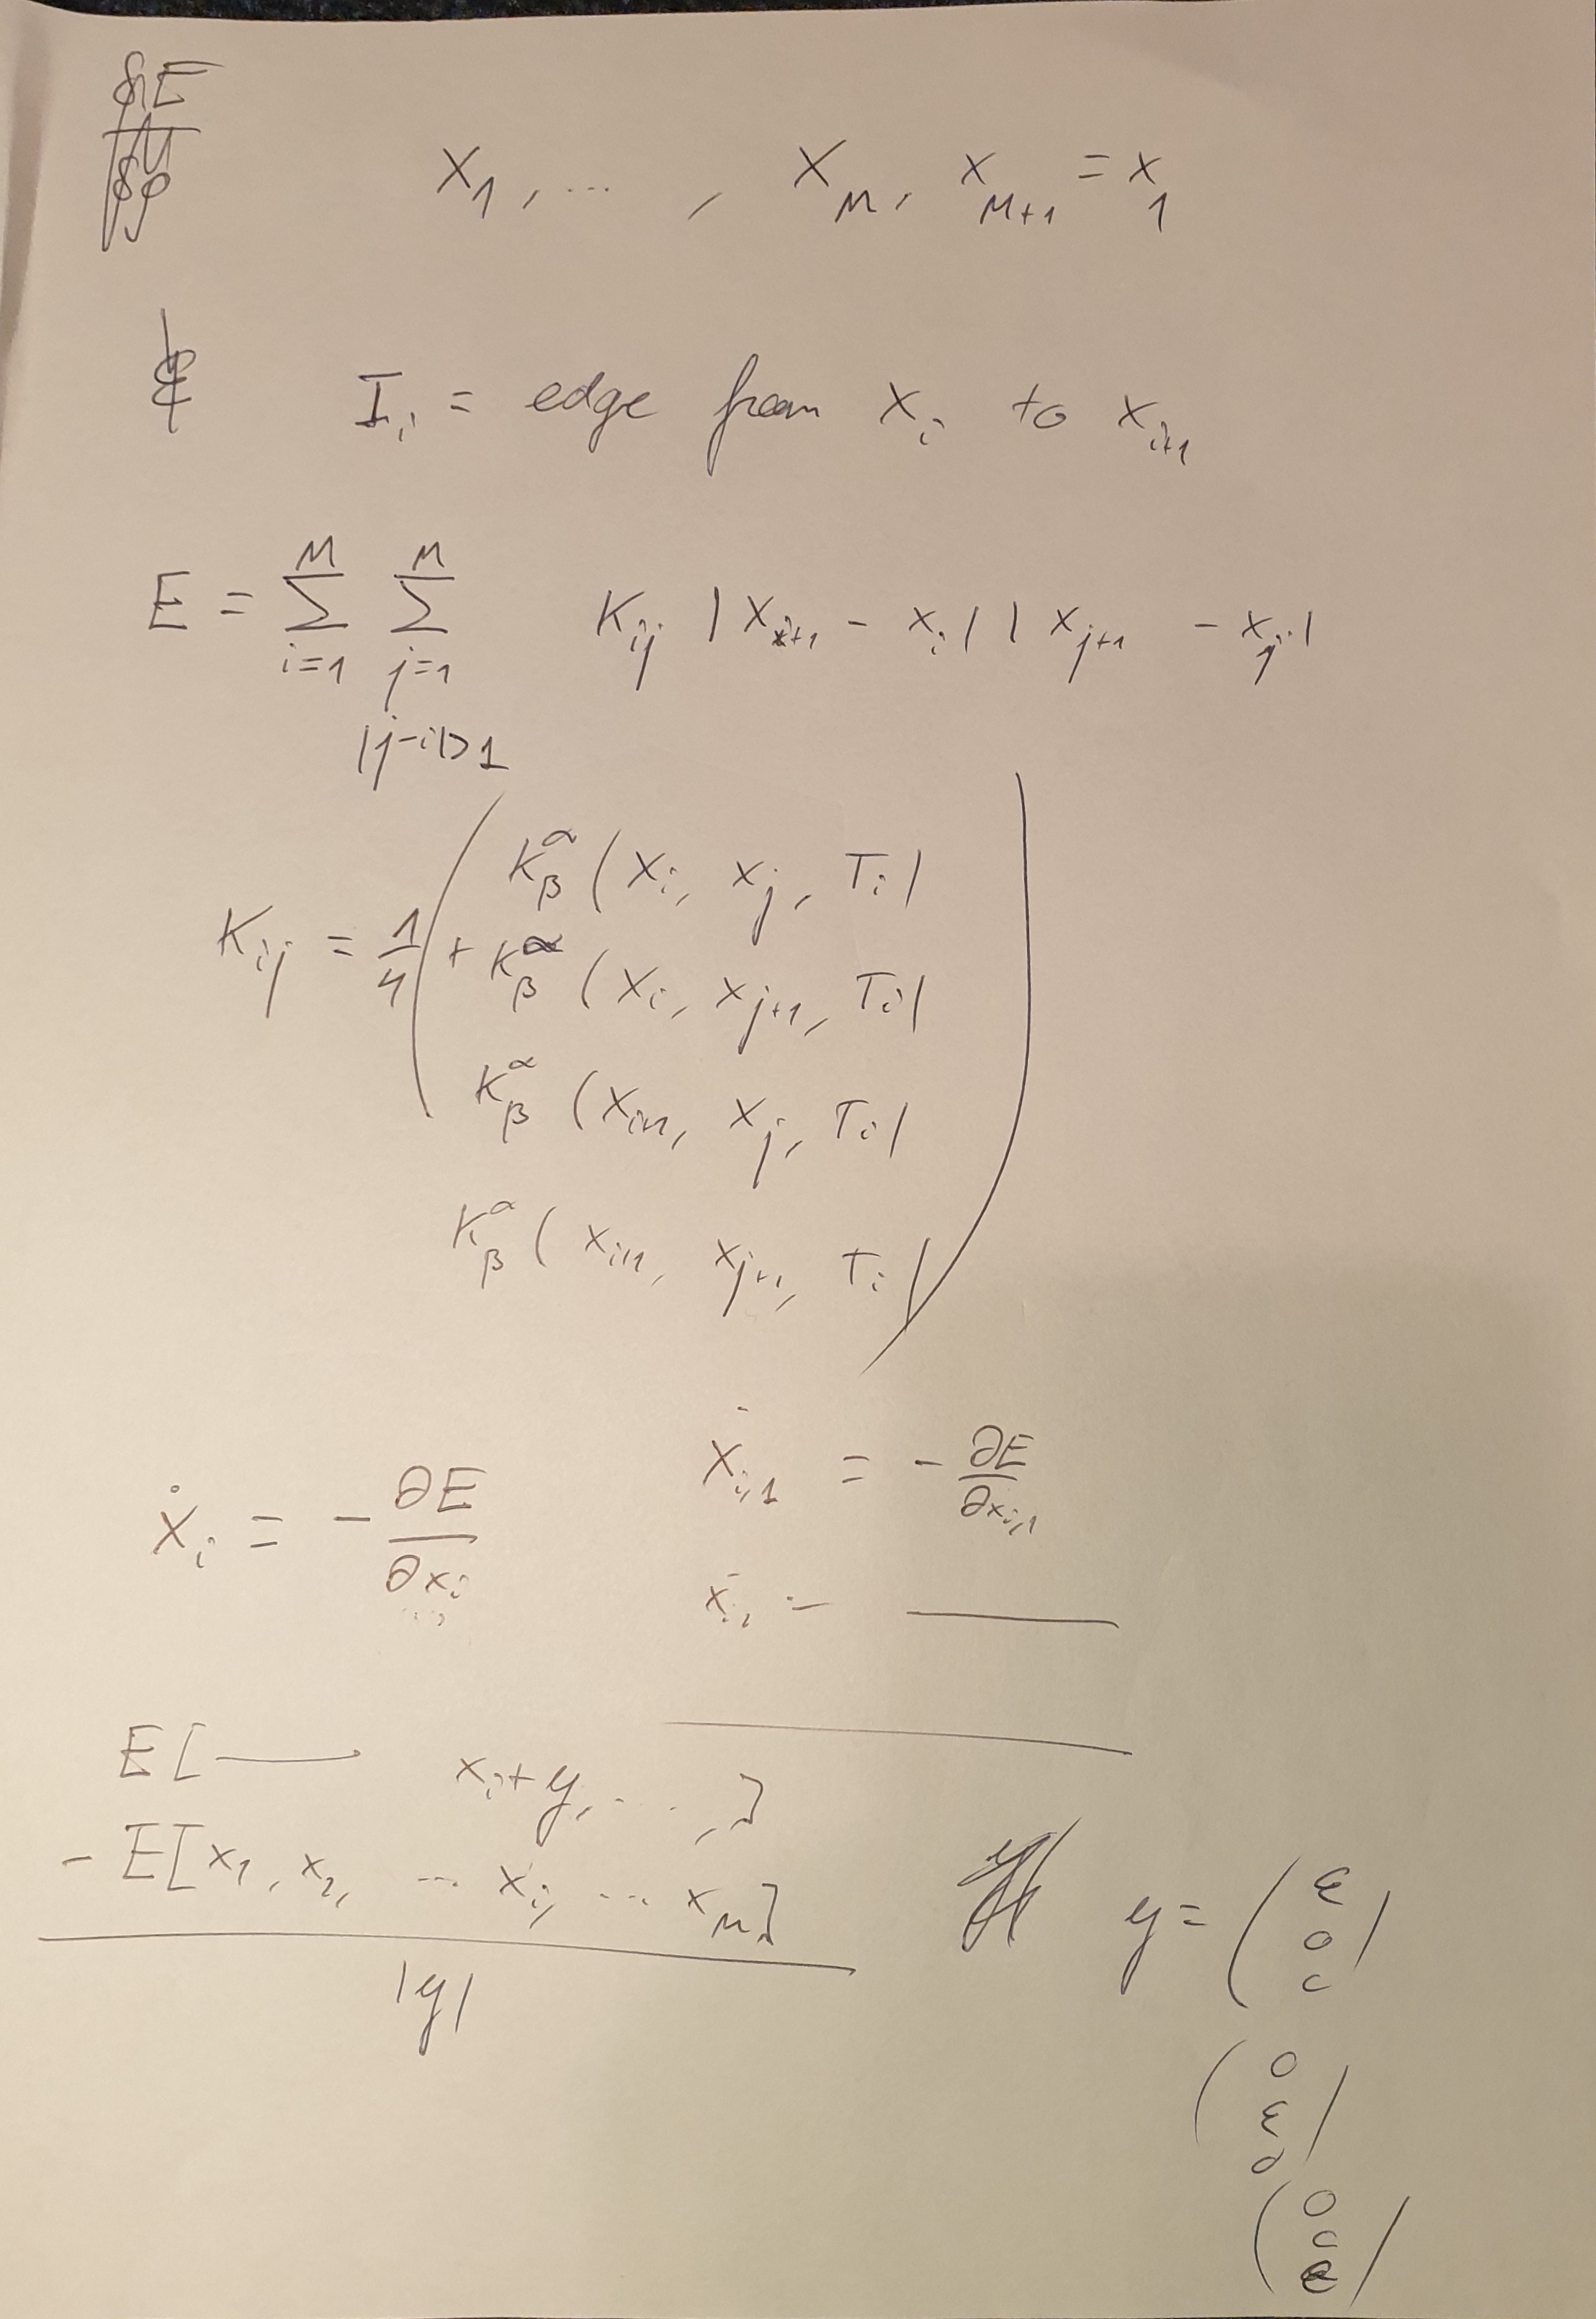 x₁, ... , x_M, x_{M+1} = x₁
I_i = edge from x_i to x_{i+1}
E = ∑_{i=1}^{M} ∑_{j=1, |j-i|>1}^{M} K_{ij} |x_{i+1} - x_i| |x_{j+1} - x_j|
K_{ij} = 1/4 ( K_β^α (x_i, x_j, T_i)
+ K_β^α (x_i, x_{j+1}, T_i)
K_β^α (x_{i+1}, x_j, T_i)
K_β^α (x_{i+1}, x_{j+1}, T_i) )
ẋ_i = - ∂E/∂x_i
ẋ_{i,1} = - ∂E/∂x_{i,1}
ẋ_{i,2} = ——
E[ —— x_i + y, ... , ]
- E[x₁, x₂, ... x_i, ... x_M]
|y|
y = (ε 0 0)
(0 ε 0)
(0 0 ε)